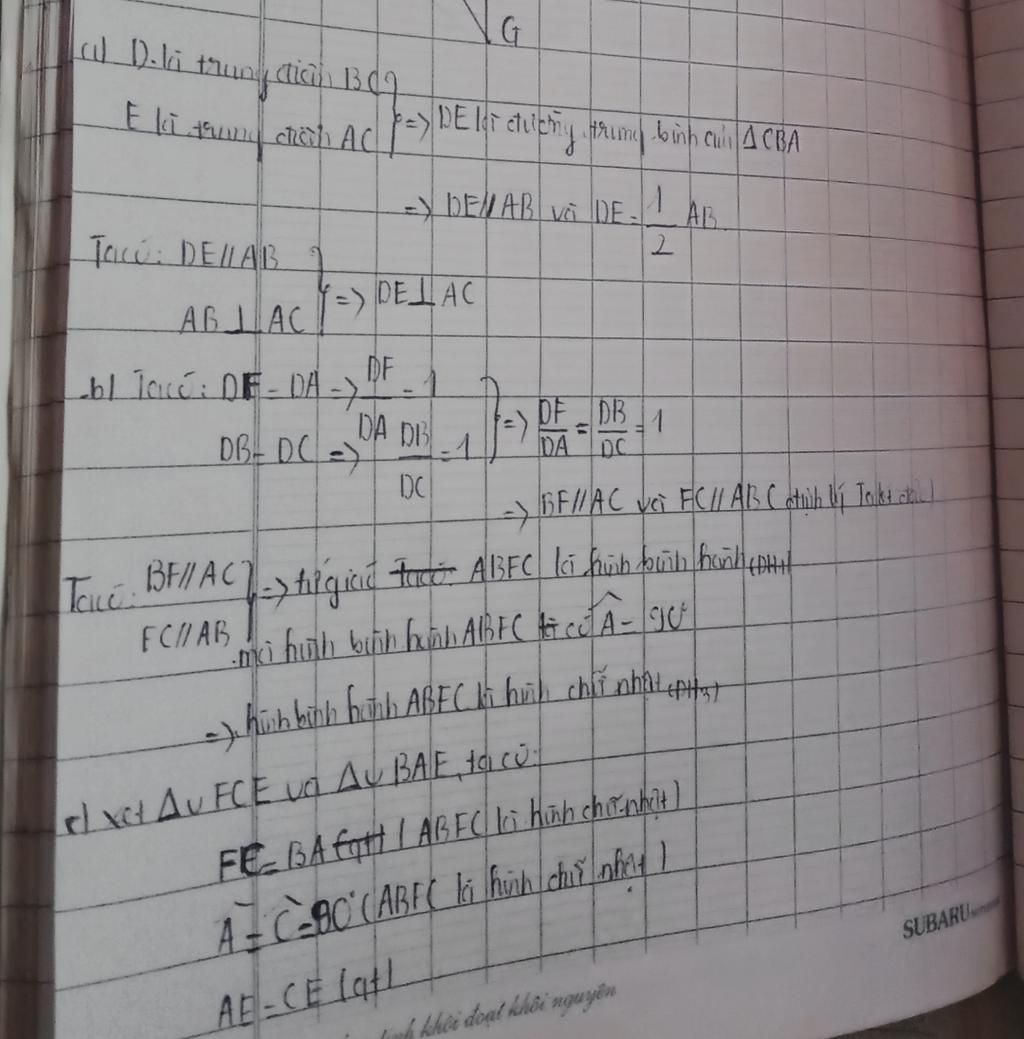 G
a) D là trung điểm BC
E là trung điểm AC } => DE là đường trung bình của ΔCBA
=> DE//AB và DE = 1/2 AB
Ta có: DE//AB
AB ⊥ AC } => DE ⊥ AC
b) Ta có: DF = DA => DF/DA = 1
DB = DC => DB/DC = 1 } => DF/DA = DB/DC = 1
=> BF//AC và FC//AB (định lý Talet đảo)
Ta có: BF//AC
FC//AB } => tứ giác ABFC là hình bình hành (DH1)
mà hình bình hành ABFC có Â = 90°
=> hình bình hành ABFC là hình chữ nhật (DH3)
c) xét Δv FCE và Δv BAE, ta có:
FC = BA (ABFC là hình chữ nhật)
Â = Ĉ = 90° (ABFC là hình chữ nhật)
AE = CE (gt)
SUBARU
khôi đoạt khôi nguyên